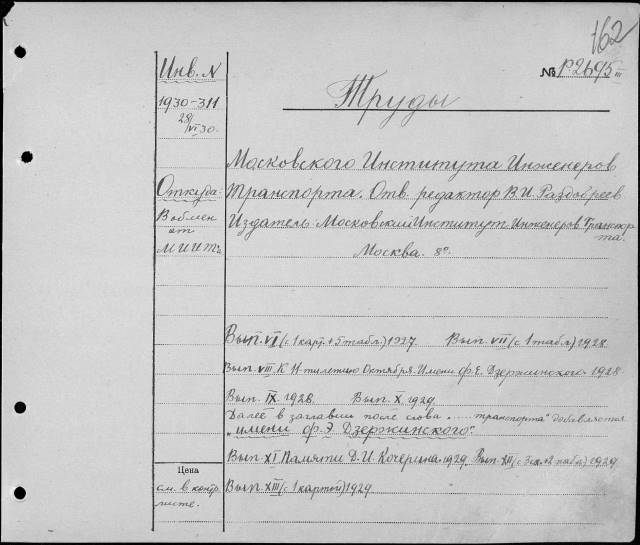 162
Инв. N
№ Р2695 III
1930-311
28/VI 30.
Труды
Московского Института Инженеров
Откуда:
Транспорта. Отв. редактор В. И. Раздобреев
В обмен
Издатель: Московский Институт Инженеров Транспор-
от
та.
МИИТ'а
Москва. 8°.
Вып. VI (с 1 карт. + 5 табл.) 1927. Вып. VII (с 1 табл.) 1928.
Вып. VIII. К 10тилетию Октября. Имени Ф. Е. Дзержинского 1928.
Вып. IX 1928. Вып. X 1929.
Далее в заглавии после слова "..... транспорта" добавляется
"имени Ф. Э. Дзержинского".
Вып XI Памяти Д. И. Кочерина 1929. Вып. XII (с 2 табл.) 1929
Цена
см. в контр.
Вып XIII (с 1 картой) 1929
листе.